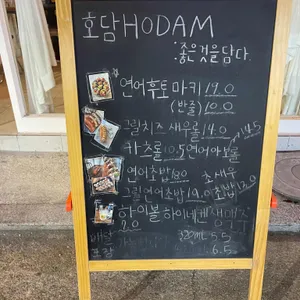 호담 HODAM
좋은것을담다.
연어후토마키 19.0
(반줄) 10.0
그릴치즈 새우롤 14.0
14.5
카츠롤 10.5 연어아보롤
연어초밥 13.0 초새우
그릴연어초밥 19.0 초밥 13.0
하이볼 하이네켄 생맥주
9.0
5.5
포장 6.5